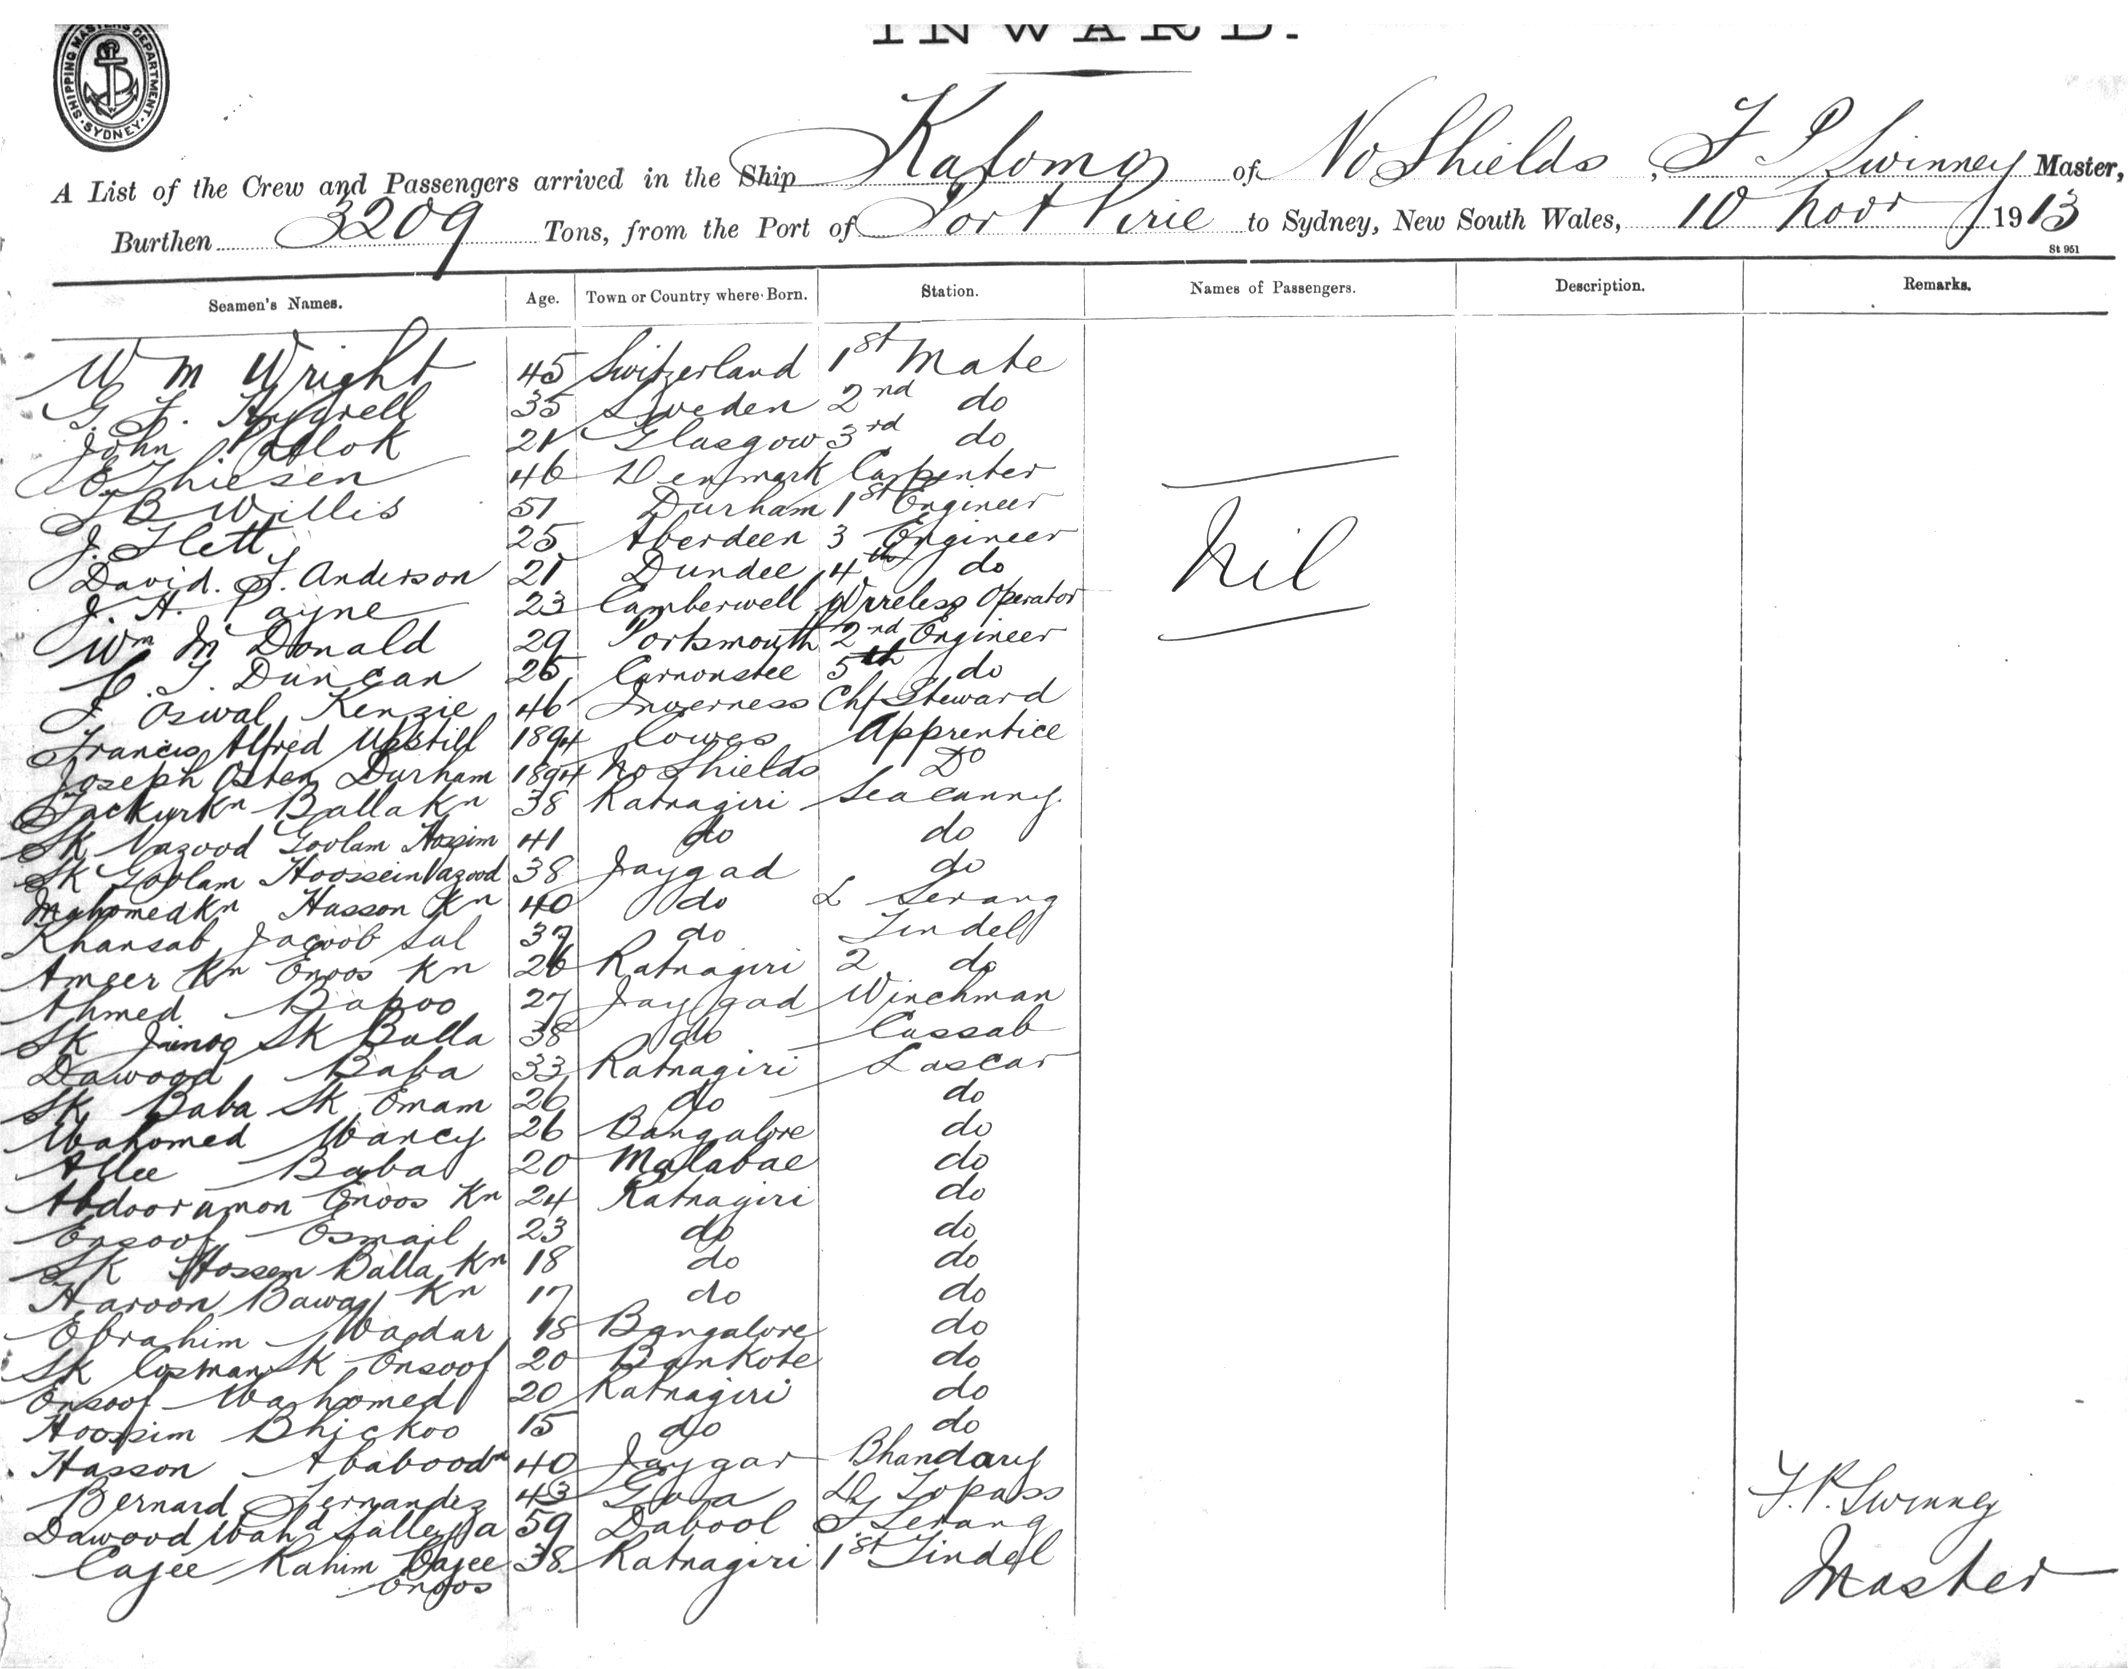 INWARD.
SHIPPING MASTERS DEPARTMENT. SYDNEY.
A List of the Crew and Passengers arrived in the Ship Kafomo of No Shields, F P Swinney Master,
Burthen 3209 Tons, from the Port of Port Pirie to Sydney, New South Wales, 10 Novr 1913
St 951
Seamen's Names. Age. Town or Country where Born. Station. Names of Passengers. Description. Remarks.
Wm Wright 45 Switzerland 1st Mate
G. F. 35 Sweden 2nd do
John Pollok 21 Glasgow 3rd do
E Thiesen 46 Denmark Carpenter
J B Willis 51 Durham 1st Engineer
J. Flett 25 Aberdeen 3 Engineer
Nil
David. F. Anderson 21 Dundee 4th do
J. A. Payne 23 Camberwell Wireless Operator
Wm McDonald 29 Portsmouth 2nd Engineer
C. T. Duncan 25 Carnoustee 5th do
J Oswal Kenzie 46 Inverness Chf Steward
Francis Alfred Upstill 1894 Cowes Apprentice
Joseph Osten Durham 1894 No Shields Do
Fackurkn Balla Kn 38 Ratnagiri Seacunny
SK Vazood Goolam Hossim 41 do do
SK Goolam Hoossein Vazood 38 Jaygad do
Mahomed Kn Hasson Kn 40 do L Serang
Khansab Jacoob Sul 37 do Tindel
Ameer Kn Enoos Kn 26 Ratnagiri 2 do
Ahmed Bapoo 27 Jaygad Winchman
SK SK Balla 38 do Cassab
Dawood Baba 33 Ratnagiri Lascar
SK Baba SK Emam 26 do do
Mahomed Marcy 26 Bangalore do
Allee Baba 20 Malabae do
Abdooramon Enoos Kn 24 Ratnagiri do
Ensoof Esmail 23 do do
SK Hossen Balla Kn 18 do do
Haroon Bawa Kn 17 do do
Ebrahim 18 Bangalore do
SK Cosman SK Ensoof 20 Bankote do
Ensoof Mahomed 20 Ratnagiri do
Hoossim Bhickoo 15 do do
Hasson Ababoodn 40 Jaygar Bhandary
Bernard Fernandez 43 Goa Dy Topass
Dawood Mahd 59 Dabool S Serang
Cajee Rahim Cajee Enoos 38 Ratnagiri 1st Tindel
F. P. Swinney
Master